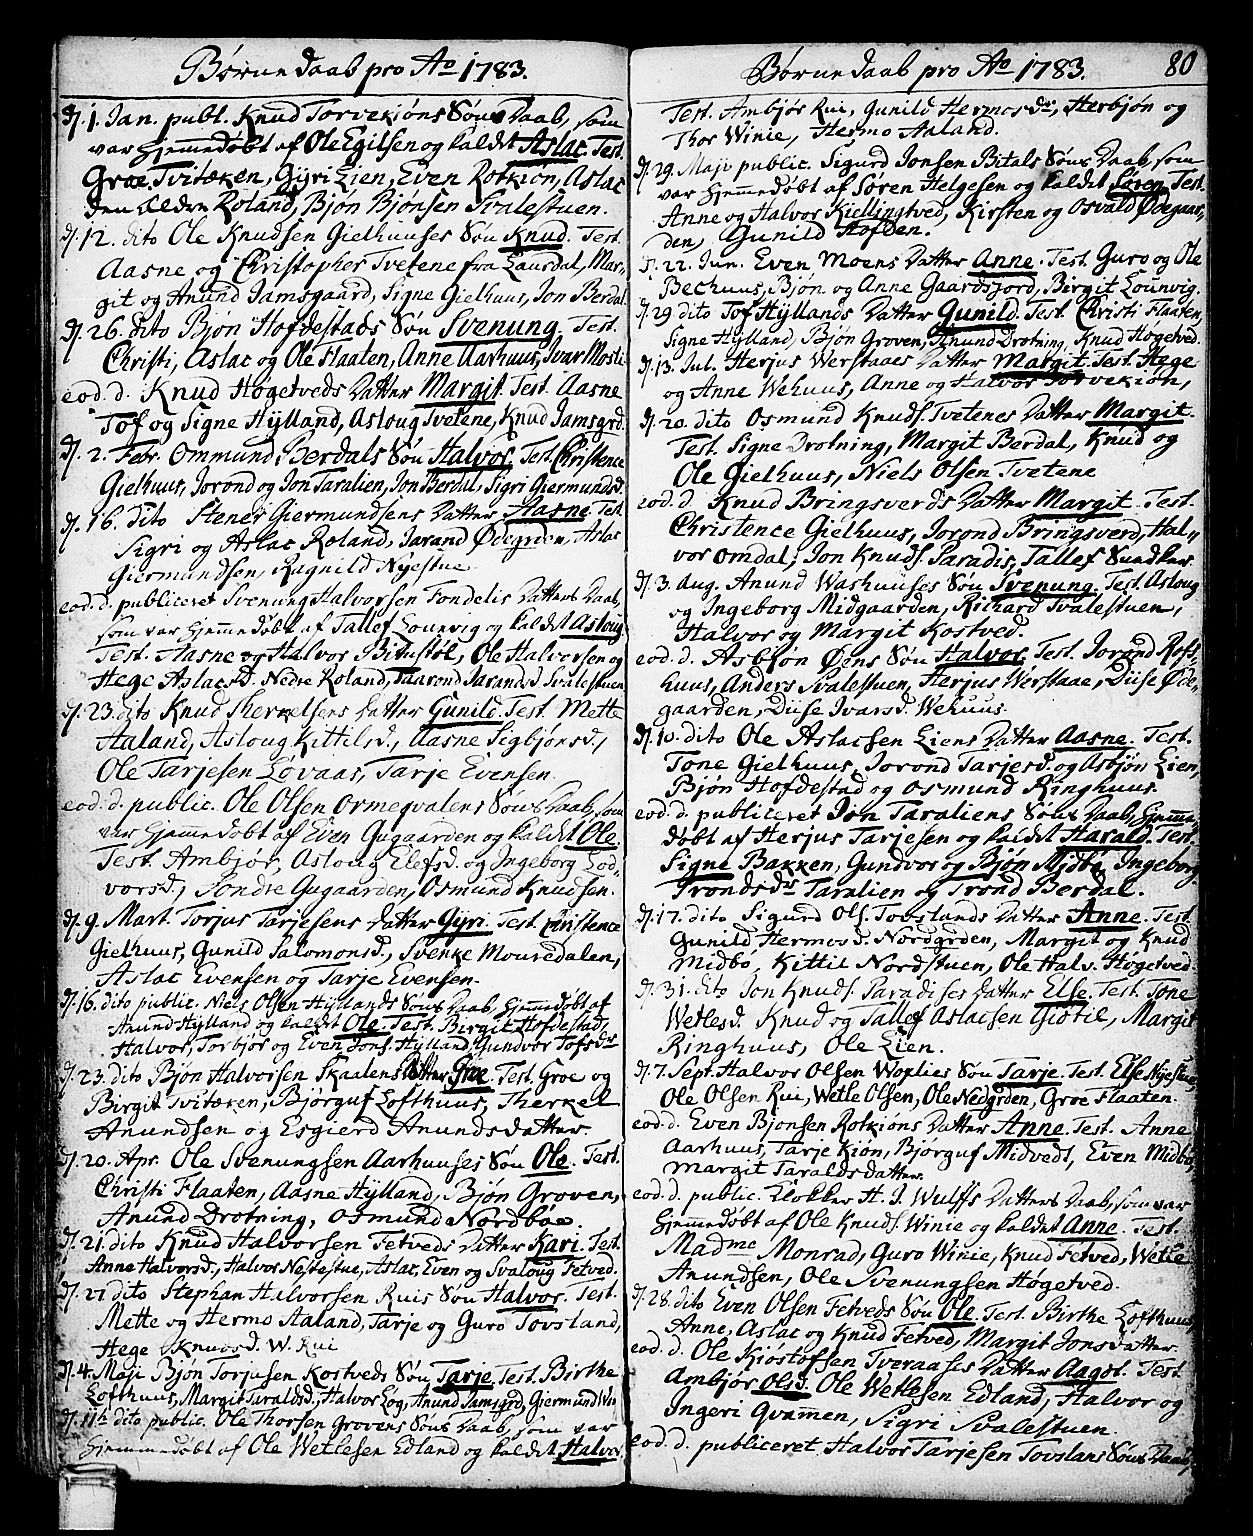 Børne Daab pro Ao 1783.
D. 1. Jan. publ. Knud Torvekiøns Søns Daab, som
var hjemmedøbt af Ole Egilsen og kaldet Aslac. Test.
Groe Tvitæken, Gyri Lien, Even Rotkion, Aslac
den ældre Roland, Bjøn Bjonsen Svalestuen.
D. 12. dito Ole Knudsen Gielhuuses Søn Knud. Test.
Aasne og Christopher Tvetene fra Laurdal, Mar-
git og Anund Jamsgaard, Signe Gielhuus, Jon Berdal
D. 26. dito Bjøn Hofdestads Søn Svenung. Test.
Christi, Aslac og Ole Flaaten, Anne Aarhuus, Ivar Mosli
eod. d. Knud Høgetveds Datter Margit. Test. Aasne
Tof og Signe Hylland, Asloug Tvetene, Knud Jamsgrd.
D. 2. Febr. Ommund Berdals Søn Halvor. Test. Christence
Gielhuus, Jorond og Jon Taralien, Jon Berdal, Sigri Giermundsd.
D. 16. dito Stener Giermundsens Datter Aasne. Test.
Sigri og Aslac Roland, Jarand Ødegrden, Aslac
Giermundsen, Ragnild Nyestue
eod. d. publiceret Svenung Halvorsen Fondelis Datters Daab,
som var hjemmedøbt af Tallef Lounvig og kaldet Asloug
Test. Aasne og Halvor Bitustøl, Ole Halvorsen og
Hege Aslacsd. Nedre Roland, Taarond Jarandsd. Svalestuen
D. 23. dito Knud Therkelsens Datter Gunild. Test. Mette
Aaland, Asloug Kittilsd., Aasne Sigbjønsd.,
Ole Tarjesen Løvaas, Tarje Evensen.
eod. d. public. Ole Olsen Ormegvalens Søns Daab, som
var hjemmedøbt af Even Gugaarden og kaldet Ole.
Test. Ambjør, Asloug Elefsd. og Ingeborg Lod-
vorsd., Sondre Gugaarden, Osmund Knudsen.
D. 9. Mart. Torjus Tarjesens Datter Gyri. Test. Christence
Gielhuus, Gunild Salomonsd., Svenke Mouredalen,
Aslac Evensen og Tarje Evensen.
D. 16. dito public. Niels Olsen Hyllands Søns Daab, hjemmedøbt af
Anund Hylland og kaldet Ole. Test. Birgit Hofdestad,
Halvor, Torbjør og Even Jons. Hylland, Gundvor Tofsdr
D. 23. dito Bjøn Halvorsen Skaalens Datter Groe. Test. Groe og
Birgit Tvitæken, Bjørguf Lofthuus, Therkel
Anundsen og Esgierd Anundsdatter.
D. 20. Apr. Ole Svenungsen Aarhuuses Søn Ole. Test.
Christi Flaaten, Aasne Hylland, Bjøn Groven,
Anund Drotning, Osmund Nordbøe.
D. 21. dito Knud Halvorsen Fetveds Datter Kari. Test.
Anne Halvorsd., Halvor Nestestue, Aslac, Even og Svaloug Fetved.
D. 27 dito Stephan Halvorsen Ruis Søn Halvor. Test.
Mette og Hermo Aaland, Tarje og Guro Tovsland,
Hege Knudsd. W. Rui
D. 4. Maji Bjøn Torjusen Kostveds Søn Tarje. Test. Birthe
Lofthuus, Margit Tvaldsd., Halvor Log, Anund Jamsgrd, Giermund Win
D. 11te dito public. Ole Thorsen Grovens Søns Daab, som var
hjemmedøbt af Ole Wetlesen Edland og kaldet Halvor.
Børne Daab pro Ao 1783. 80
Test. Ambjør Rui, Gunild Hermosdr, Herbjøn og
Thor Winie, Hermo Aaland.
D. 29. Maji public. Sigurd Jonsen Bitals Søns Daab, som
var hjemmedøbt af Søren Helgesen og kaldet Søren. Test.
Anne og Halvor Kiellingtved, Kirsten og Osvald Ødegaar-
den, Gunild Hofden.
D. 22. Jun. Even Moens Datter Anne. Test. Guro og Ole
Bechuus, Bjøn og Anne Gaardsjord, Birgit Lounvig.
D. 29. dito Tof Hyllands Datter Gunild. Test. Christi Flaaten,
Signe Hylland, Bjøn Groven, Anund Drotning, Knud Høgetved.
D. 13. Jul. Herjus Werstaaes Datter Margit. Test. Hege
og Anne Wehuus, Anne og Halvor Torvekiøn,
D. 20. dito Osmund Knuds. Tvetenes Datter Margit.
Test. Signe Drotning, Margit Berdal, Knud og
Ole Gielhuus, Niels Olsen Tvetene
eod. d. Knud Bringsverds Datter Margit. Test.
Christence Gielhuus, Jorond Bringsverd, Hal-
vor Omdal, Jon Knuds. Paradis, Tallef Sundker
D. 3. Aug. Anund Washuuses Søn Svenung. Test. Asloug
og Ingeborg Midgaarden, Richard Svalestuen,
Halvor og Margit Kostved.
eod. d. Asbjøn Øens Søn Halvor. Test. Jorond Rofs-
huus, Anders Svalestuen, Herjus Werstaae, Diise Øde-
gaarden, Diise Ivarsd. Wehuus.
D. 10. dito Ole Aslacsen Liens Datter Aasne. Test.
Tone Gielhuus, Jorond Tarjesd. og Asbjøn Lien,
Bjøn Hofdestad og Osmund Ringhuus.
eod. d. publiceret Jon Taraliens Søns Daab, hjemme-
døbt af Herjus Tarjesen og kaldet Harald. Test.
Signe Bakken, Gundvor og Bjøn Midbø, Ingeborg
Trondsdr Taralien og Trond Berdal.
D. 17. dito Sigurd Ols. Tovslands Datter Anne. Test.
Gunild Hermosd. Nordgrden, Margit og Knud
Midbö, Kittil Nordstuen, Ole Halv. Høgetved.
D. 31. dito Jon Knuds. Paradises Datter Else. Test. Tone
Wetlesd. Knud og Tallef Aslacsen Giötil, Margit
Ringhuus, Ole Lien.
D. 7. Sept. Halvor Olsen Woplies Søn Tarje. Test. Else Nyestue
Ole Olsen Rui, Wetle Olsen, Ole Nedgrden, Groe Flaaten.
eod. d. Even Bjonsen Rotkiøns Datter Anne. Test. Anne
Aarhuus, Tarje Kiøn, Bjørguf Midvedt, Even Midbø,
Margit Taraldsdatter.
eod. d. public. Klokker H. J. Wulffs Datters Daab, som var
hjemmedøbt af Ole Knuds. Winie og kaldet Anne. Test.
Madme Monrad, Guro Winie, Knud Fetved, Wetle
Anundsen, Ole Svenungsen Høgetved.
D. 28. dito Even Olsen Fetveds Søn Ole. Test. Birthe Lofthuus,
Anne, Aslac og Knud Fetved, Margit Jonsdatter.
eod. d. Ole Kiøstofsen Tveraases Datter Aagot. Test.
Ambjør Olsd. Ole Wetlesen Edland, Halvor og
Ingeri Gvammen, Sigri Svalestuen.
eod. d. publiceret Halvor Tarjesen Tovslans Søns Daab,